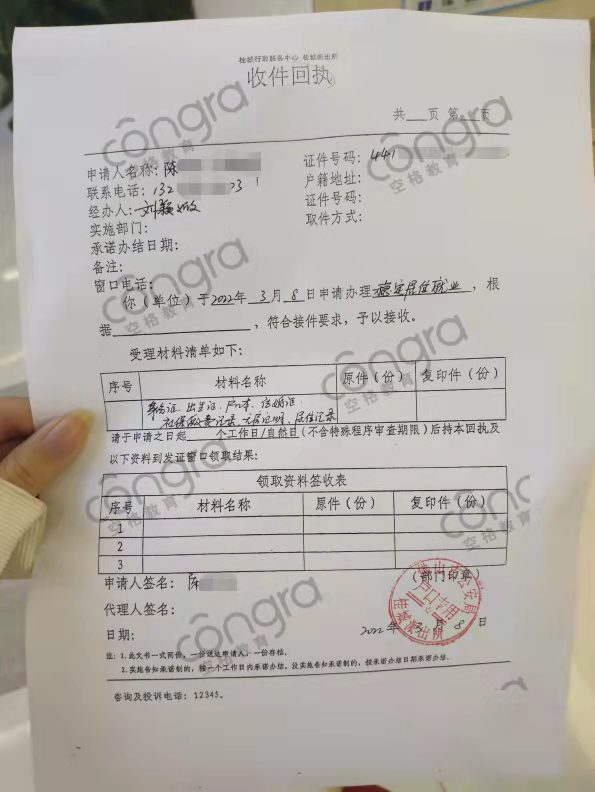 桂城行政服务中心 桂城派出所
收件回执
共___页 第___页
申请人名称:陈
证件号码:441
联系电话:132 23
户籍地址:
经办人:刘颖
证件号码:
实施部门:
取件方式:
承诺办结日期:
备注:
窗口电话:
你(单位)于2022年3月8日申请办理稳定居住就业,根
据___,符合接件要求,予以接收。
受理材料清单如下:
序号 材料名称 原件(份) 复印件(份)
身份证、出生证、户口本、结婚证
社保缴费记录、无房证明、居住记录
请于申请之日起___个工作日/自然日(不含特殊程序审查期限)后持本回执及
以下资料到发证窗口领取结果:
领取资料签收表
序号 材料名称 原件(份) 复印件(份)
1
2
3
申请人签名:陈
(部门印章)
代理人签名:
日期:
2022年3月8日
佛山市公安局
户口专用
派出所
注:1.此文书一式两份,一份送达申请人,一份存档。
2.实施告知承诺制的,按一个工作日内承诺办结。没实施告知承诺制的,按承诺办结日期承诺办结。
咨询及投诉电话:12345。
congra
空格教育
congra
空格教育
congra
空格教育
congra
空格教育
congra
空格教育
congra
空格教育